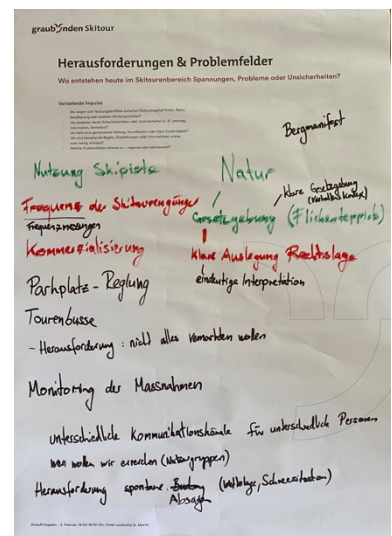 graubünden Skitour
Herausforderungen & Problemfelder
Wo entstehen heute im Skitourenbereich Spannungen, Probleme oder Unsicherheiten?
Vertiefende Impulse
Bergmanifest
Nutzung Skipiste
Natur
klare Gesetzgebung
Frequenz der Skitourengänger
Gesetzgebung (Flickenteppich)
Frequenzmessungen
Kommerzialisierung
klare Auslegung Rechtslage
eindeutige Interpretation
Parkplatz-Reglung
Tourenbusse
- Herausforderung: nicht alles vermarkten wollen
Monitoring der Massnahmen
unterschiedliche Kommunikationskanäle für unterschiedliche Personen
wen wollen wir erreichen (Nutzergruppen)
Herausforderung spontane (Wetterlage, Schneesituation)
Absagen